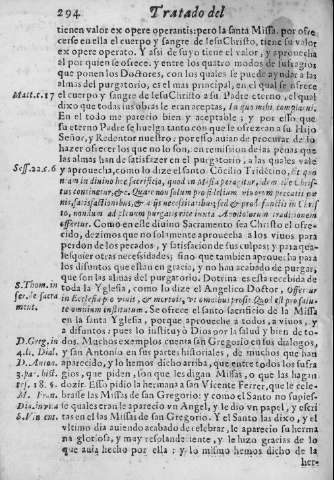 294 Tratado del
tienen valor ex opere operantis: pero la santa Missa, por ofre
cerse en ella el cuerpo y sangre de IesuChristo, tiene su valor
ex opere operato. Y assi de suyo tiene el valor, y aprouecha
al por quien se ofrece. y entre los quatro modos de sufragios
que ponen los Doctores, con los quales se puede ayudar a las
almas del purgatorio, es el mas principal, en el qual se ofrece
Matt.c.17 el cuerpo y sangre de IesuChristo a su Padre eterno, el qual
dixo que todas sus obras le eran aceptas, In quo mihi complacui.
En el todo me parecio bien y aceptable; y por esso que
su eterno Padre se huelga tanto con que le ofrezcan a su Hijo
Señor, y Redentor nuestro: por esso auian de procurar de lo
hazer ofrecer los que no lo son, en remission de las penas que
las almas han de satisfazer en el purgatorio, a las quales vale
Sess.22.c.6 y aprouecha, como lo dize el santo Cōcilio Tridētino, Et quo
niam in diuino hoc sacrificio, quod in Missa peragitur, idem ille Chris-
tus continetur, &c. Quare non solum pro fidelium viuorum peccatis pœ
nis, satisfactionibus, & alijs necessitatibus, sed & pro defunctis in Chris
to, nondum ad plenum purgatis rite iuxta Apostolorum traditionem
offertur. Como en este diuino Sacramento sea Christo el ofre-
cido, dezimos que no solamente aprouecha a los viuos para
perdon de los pecados, y satisfacion de sus culpas; y para qua-
lesquier otras necessidades; sino que tambien aprouecha para
los difuntos que estan en gracia, y no han acabado de purgar,
que son las almas del purgatorio. Dotrina es esta recebida de
S. Thom. in toda la Yglesia, como lo dize el Angelico Doctor, Offertur
ser. de sacra in Ecclesia pro viuis, & mortuis, vt omnibus prosit Quod est pro salu-
ment. te omnium institutum. Se ofrece el santo sacrificio de la Missa
en la santa Yglesia, porque aproueche a todos, a viuos, y
a difuntos; pues lo instituyó Dios por la salud y bien de to-
D. Greg. in dos. Muchos exemplos cuenta san Gregorio en sus dialogos,
4. li. Dial. y san Antonio en sus partes historiales, de muchos que han
D. Anton. aparecido, y lo hemos dicho arriba, que entre todos los sufra
3. pa. hist. gios, que piden, son que les digan Missas, o que las hagan
tej. 18. §. dezir. Esso pidio la hermana a san Vicente Ferrer, que le cele-
M. Fran. brasse las Missas de san Gregorio: y como el Santo no supies-
Dia. in vita se quales eran le aparecio vn Angel, y le dio vn papel, y escri
S. Vincent. tas en el las Missas de san Gregorio. Y el Santo las dixo, y el
vltimo dia auiendo acabado de celebrar, le aparecio su herma
na gloriosa, y muy resplandeciente, y le hizo gracias de lo
que auia hecho por ella: y lo mismo hemos dicho de la
her-